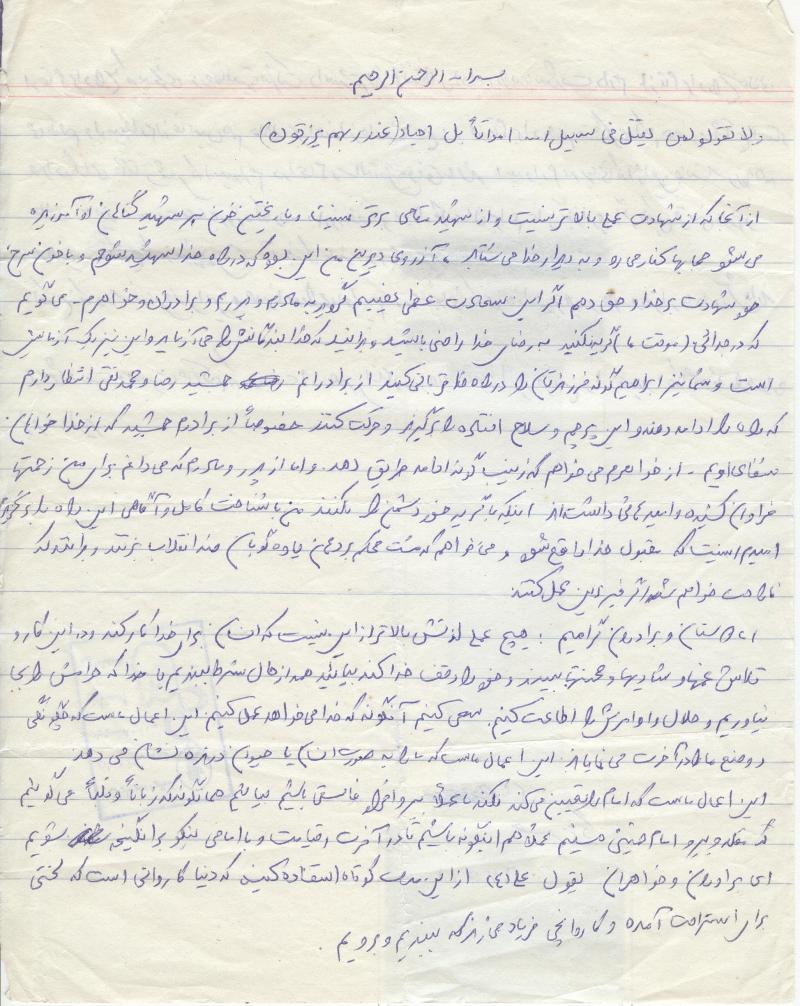 بسم الله الرحمن الرحیم
ولا تقولو لمن یقتل فی سبیل الله امواتاً بل احیاء (عند ربهم یرزقون)
از آنجا که از شهادت عملی بالاتر نیست و از شهید مقامی برتر نیست و با ریختن خون هر شهید گناهان او آمرزیده
می شود حجابها کنار می رود و به دیدار خدا می شتابد ، آرزوی دیرین من این بوده که در راه خدا شهید شوم و با خون سرخ
خود شهادت بر خدا و حق دهم اگر این سعادت عظمی نصیبم گردید به مادرم و پدرم و برادران و خواهرم - می گویم
که در جدائی (موقت ما) گریه نکنید به رضای خدا راضی باشید و بدانید که خدا بندگانش را می آزماید و این نیز یک آزمایش
است و شما نیز ابراهیم گونه فرزندتان را در راه خدا قربانی کنید از برادرانم جمشید رضا و محمد تقی انتظار دارم
که راه ما را ادامه دهند و این پرچم و سلاح افتاده را برگیرند و حرکت کنند خصوصاً از برادرم جمشید که از خدا خواهان
شفای اویم - از خواهرم می خواهم که زینب گونه ادامه طریق دهد . و اما از پدر و مادرم که می دانم برای من زحمتها
فراوان کشیده و امید هائی داشته اند اینکه با گریه خود دشمن را نکنند من با شناخت کامل و آگاهی این راه را برگزیدم
امیدم اینست که مقبول خدا واقع شود و می خواهم که مشت محکم بر دهان یاوه گویان ضد انقلاب بزنند و بدانند که
ناراحت خواهم شد اگر غیر از این عمل کنند
دوستان و برادران گرامیم : هیچ عملی لذتش بالاتر از این نیست که انسان برای خدا کار کند و در این کار و
تلاش غمها و شادیها و محنتها ببیند و خود را وقف خدا کند بیائید همه از حال شرط ببندیم با خدا که حرامش را بجا
نیاوریم و حلال و اوامرش را اطاعت کنیم . سعی کنیم آنگونه که خدا می خواهد عمل کنیم این اعمال ماست که چگونگی
و وضع ما را در آخرت می نمایاند . این اعمال ماست که ما را به صورت انسان یا حیوان درنده نشان می دهد
این اعمال ماست که امام ما را تعیین می کند نکند ما عملاً پیرو افراد فاسقی باشیم بیائیم همانگونه که زباناً و قلباً می گوئیم
که مقلد و پیرو امام خمینی هستیم عملاً هم اینگونه باشیم تا در آخرت و قیامت و با امامی نیکو برانگیخته شویم
ای برادران و خواهران بقول علی (ع) از این مدت کوتاه استفاده کنید که دنیا کاروانی است که لختی
برای استراحت آمده و کاروانچی فریاد می زند که ببندیم و برویم .